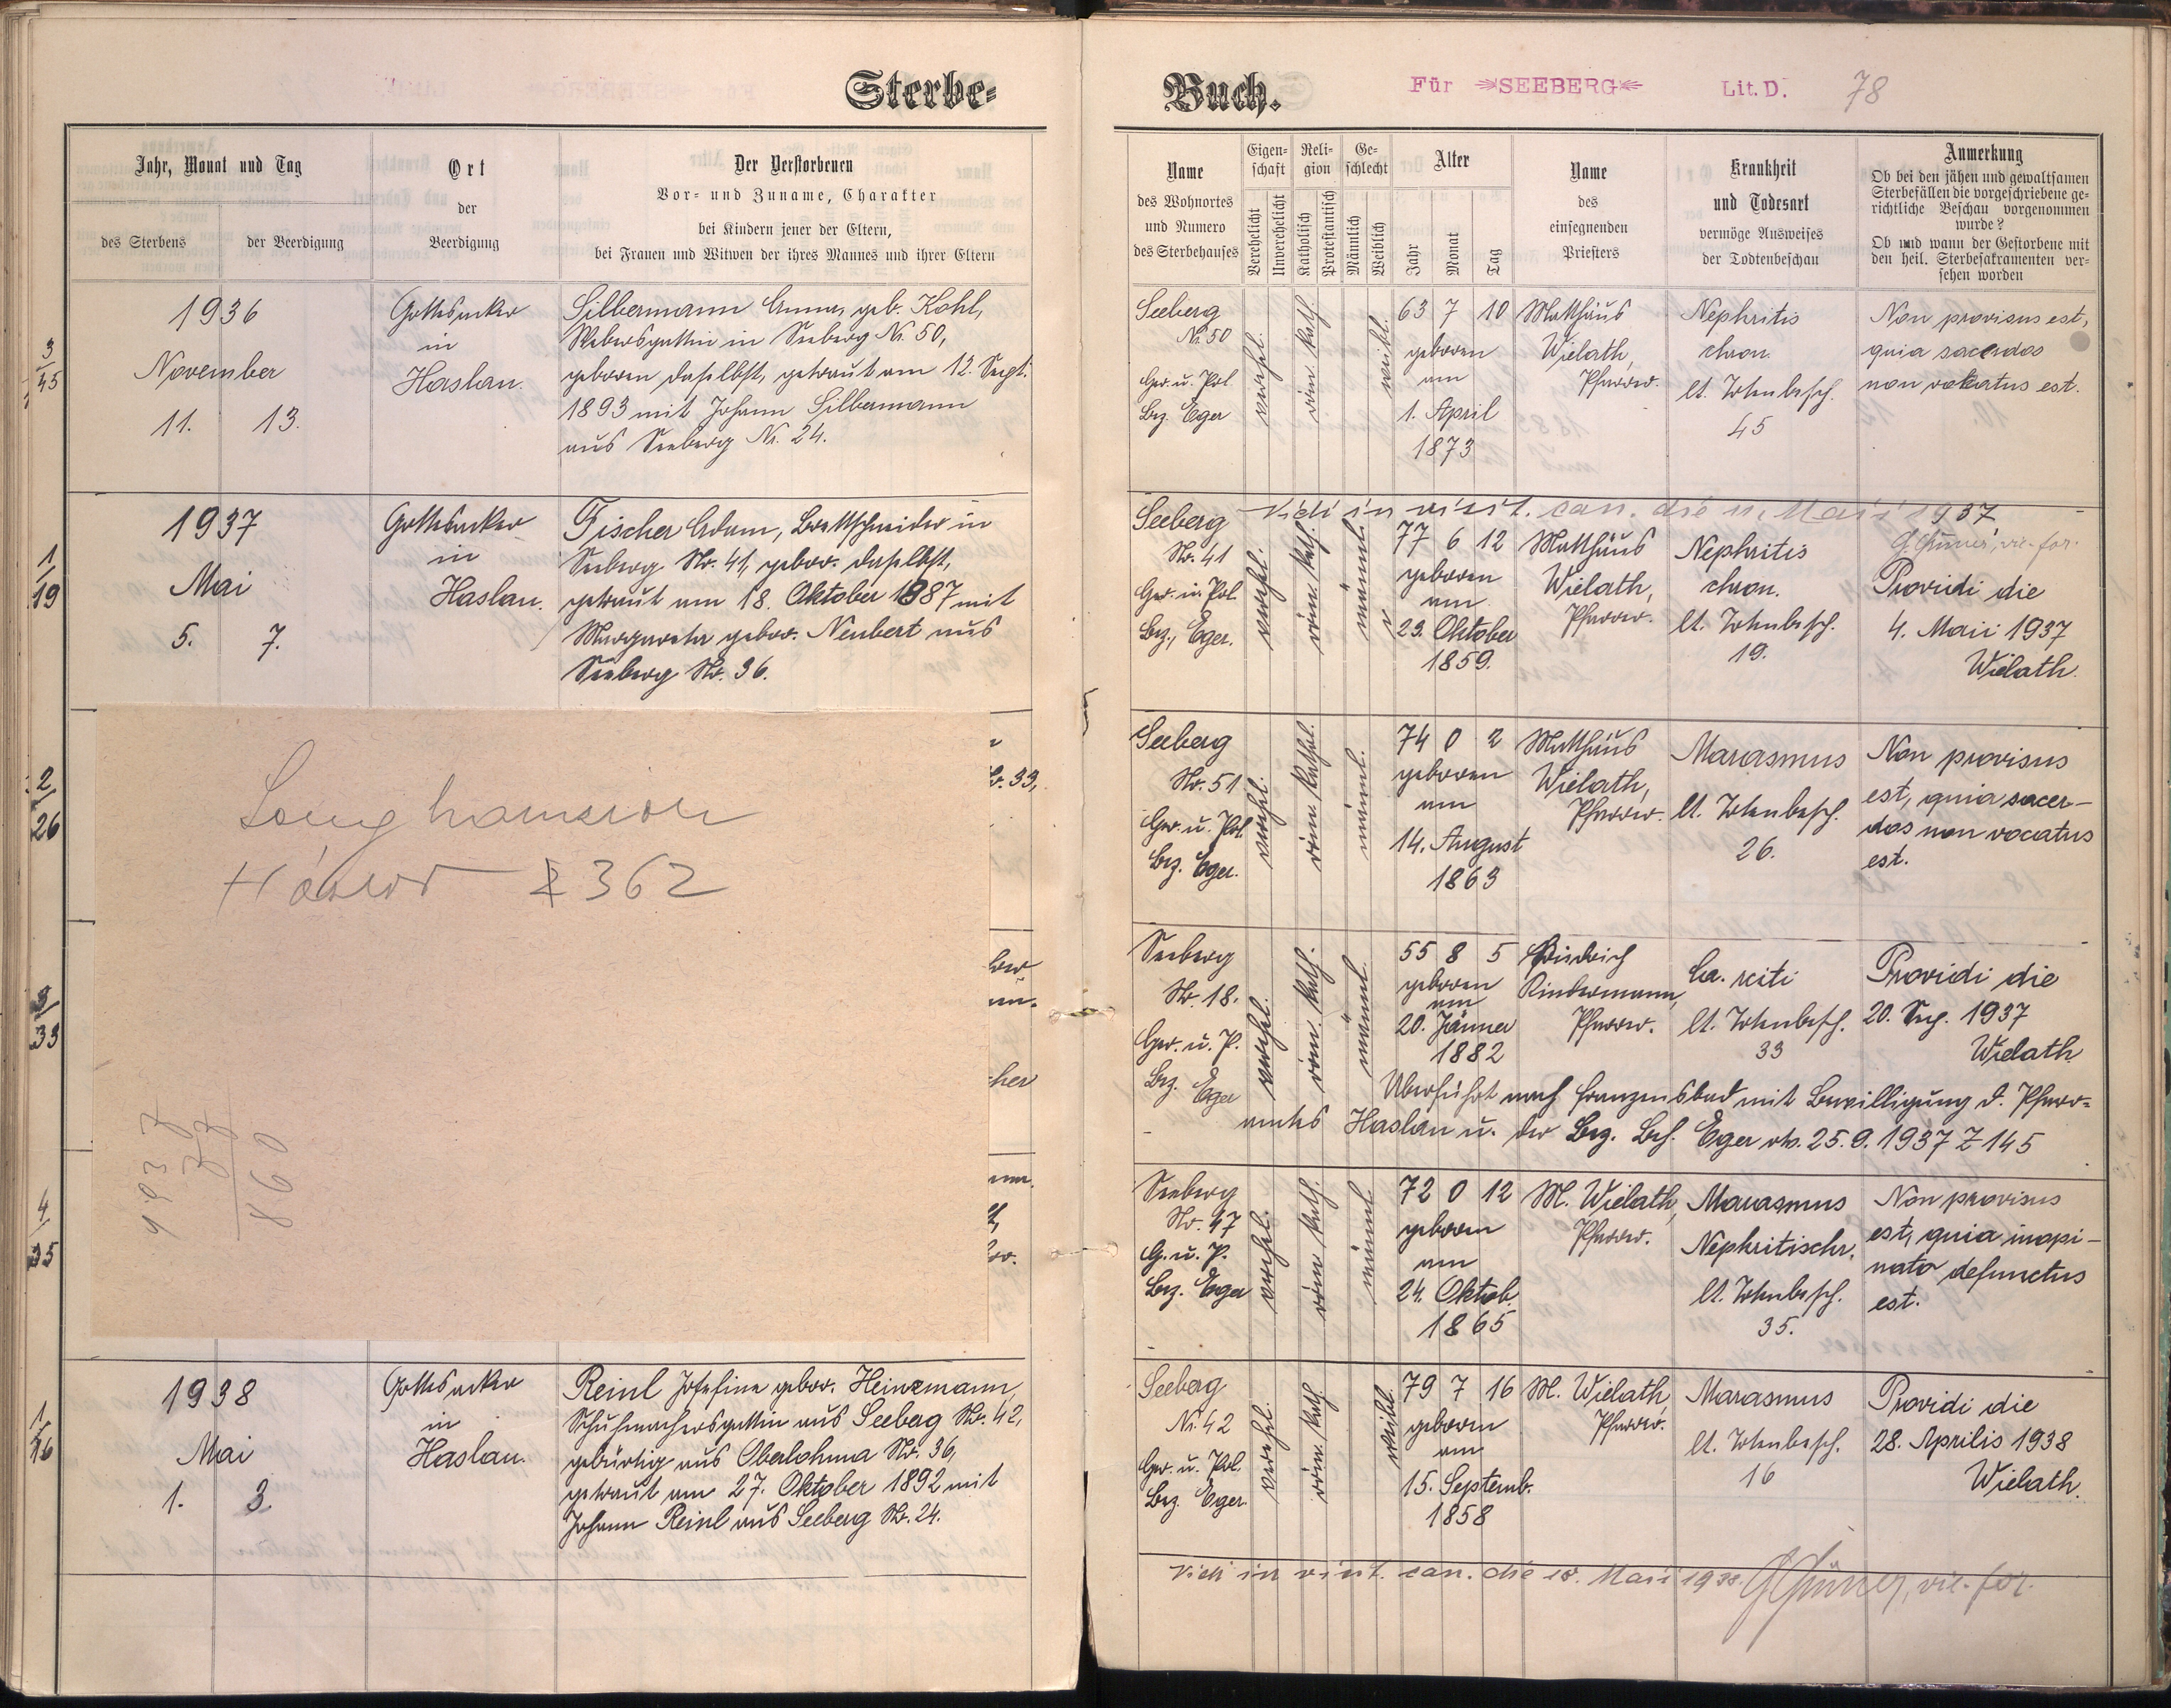 Sterbe-
Jahr, Monat und Tag
des Sterbens
der Beerdigung
Ort
der
Beerdigung
Der Verstorbenen
Vor- und Zuname, Charakter
bei Kindern jener der Eltern,
bei Frauen und Witwen der ihres Mannes und ihrer Eltern
3
45
1936
November
11. 13.
Gottesacker
in
Haslau.
Silbermann Anna, geb. Kohl,
Webersgattin in Seeberg Nr. 50,
geboren daselbst, getraut am 12. Sept.
1893 mit Johann Silbermann
aus Seeberg Nr. 24.
1
19
1937
Mai
5. 7.
Gottesacker
in
Haslau.
Fischer Adam, Brettschneider in
Seeberg Nr. 41, gebor. daselbst,
getraut am 18. Oktober 1887 mit
Margareta gebor. Neubert aus
Seeberg Nr. 36.
2
26
33,
362
3
33
cher
4
35
1
16
1938
Mai
1. 3.
Gottesacker
in
Haslau.
Reinl Josefine gebor. Heinzmann,
Schuhmachersgattin aus Seeberg Nr. 42,
gebürtig aus Oberlohma Nr. 36,
getraut am 27. Oktober 1892 mit
Johann Reinl aus Seeberg Nr. 24.
Buch.
Für SEEBERG Lit. D. 78
Name
des Wohnortes
und Numero
des Sterbehauses
Eigenschaft
Verehelicht
Unverehelicht
Religion
Katholisch
Protestantisch
Geschlecht
Männlich
Weiblich
Alter
Jahr
Monat
Tag
Name
des
einsegnenden
Priesters
Krankheit
und Todesart
vermöge Ausweises
der Todtenbeschau
Anmerkung
Ob bei den jähen und gewaltsamen
Sterbefällen die vorgeschriebene ge-
richtliche Beschau vorgenommen
wurde?
Ob und wann der Gestorbene mit
den heil. Sterbesakramenten ver-
sehen worden
Seeberg
Nr. 50
Ger. u. Pol.
Bez. Eger
verehel.
röm. kath.
weibl.
63 7 10
geboren
am
1. April
1873
Matthäus
Wielath,
Pfarrer.
Nephritis
chron.
lt. Totenbesch.
45
Non provisus est,
quia sacerdos
non vokatus est.
Vidi in visit. can. die 11. Maii 1937
vic. for.
Seeberg
Nr. 41
Ger. u. Pol.
Bez. Eger.
verehel.
röm. kath.
männl.
77 6 12
geboren
am
23. Oktober
1859.
Matthäus
Wielath,
Pfarrer.
Nephritis
chron.
lt. Totenbesch.
19.
Providi die
4. Maii 1937
Wielath.
Seeberg
Nr. 51
Ger. u. Pol.
Bz. Eger.
verehel.
röm. kathol.
männl.
74 0 2
geboren
am
14. August
1863
Matthäus
Wielath,
Pfarrer.
Marasmus
lt. Totenbesch.
26.
Non provisus
est, quia sacer-
dos non vocatus
est.
Seeberg
Nr. 18.
Ger. u. P.
Bez. Eger
verehel.
röm. kath.
männl.
55 8 5
geboren
am
20. Jänner
1882
Friedrich
Rindermann,
Pfarrer.
Ca. recti
lt. Totenbesch.
33
Providi die
20. Sep. 1937
Wielath
Überführt nach Franzensbad mit Bewilligung d. Pfarr-
amtes Haslau u. der Bez. Beh. Eger dto. 25. 9. 1937 Z 145
Seeberg
Nr. 47
G. u. P.
Bez. Eger
verehel.
röm. kath.
männl.
72 0 12
geboren
am
24. Oktob.
1865
M. Wielath,
Pfarrer.
Marasmus
Nephritischr.
lt. Totenbesch.
35.
Non provisus
est, quia inopi-
nato defunctus
est.
Seeberg
Nr. 42
Ger. u. Pol.
Bez. Eger.
verehel.
röm. kath.
weibl.
79 7 16
geboren
am
15. Septemb.
1858
M. Wielath,
Pfarrer.
Marasmus
lt. Totenbesch.
16
Providi die
28. Aprilis 1938
Wielath.
Vidi in visit. can. die 18. Maii 1938. vic. for.